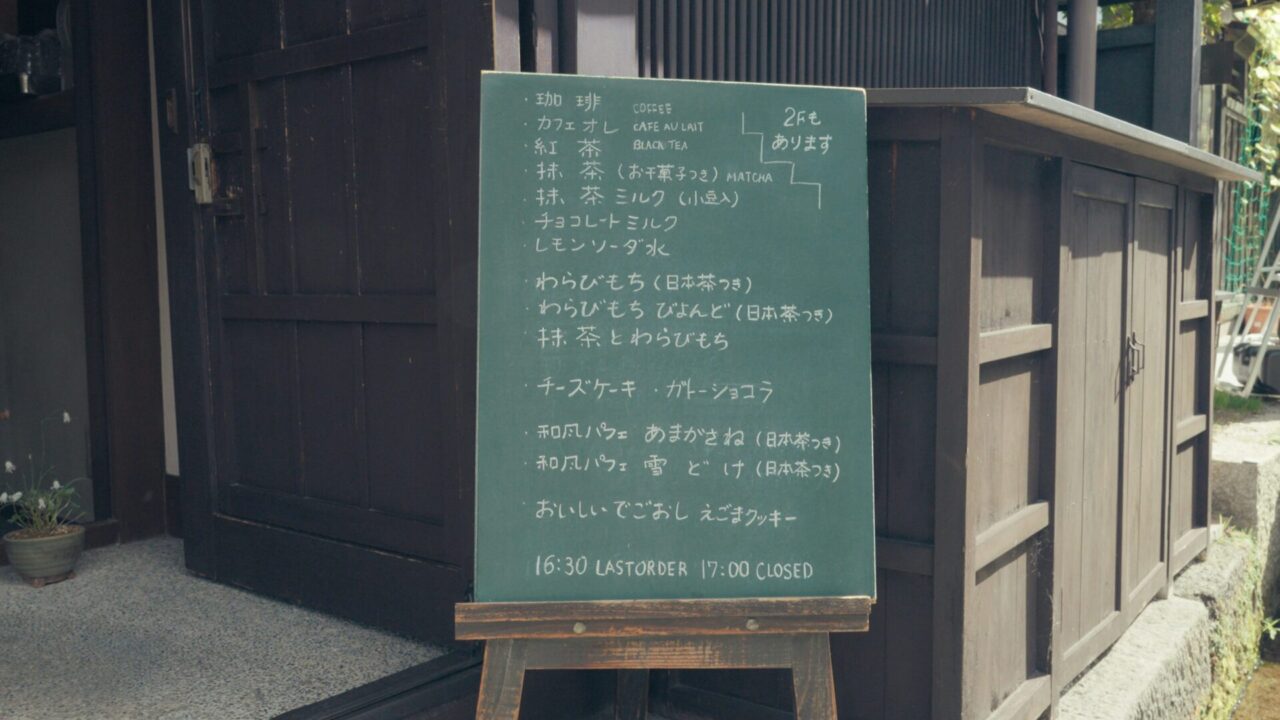 ・珈琲 COFFEE
・カフェオレ CAFE AU LAIT
・紅茶 BLACK TEA
・抹茶（お干菓子つき）MATCHA
・抹茶ミルク（小豆入）
・チョコレートミルク
・レモンソーダ水
2Fも
あります
・わらびもち（日本茶つき）
・わらびもち びよんど（日本茶つき）
・抹茶とわらびもち
・チーズケーキ ・ガトーショコラ
・和風パフェ あまがさね（日本茶つき）
・和風パフェ 雪どけ（日本茶つき）
・おいしいでごおし えごまクッキー
16:30 LASTORDER 17:00 CLOSED